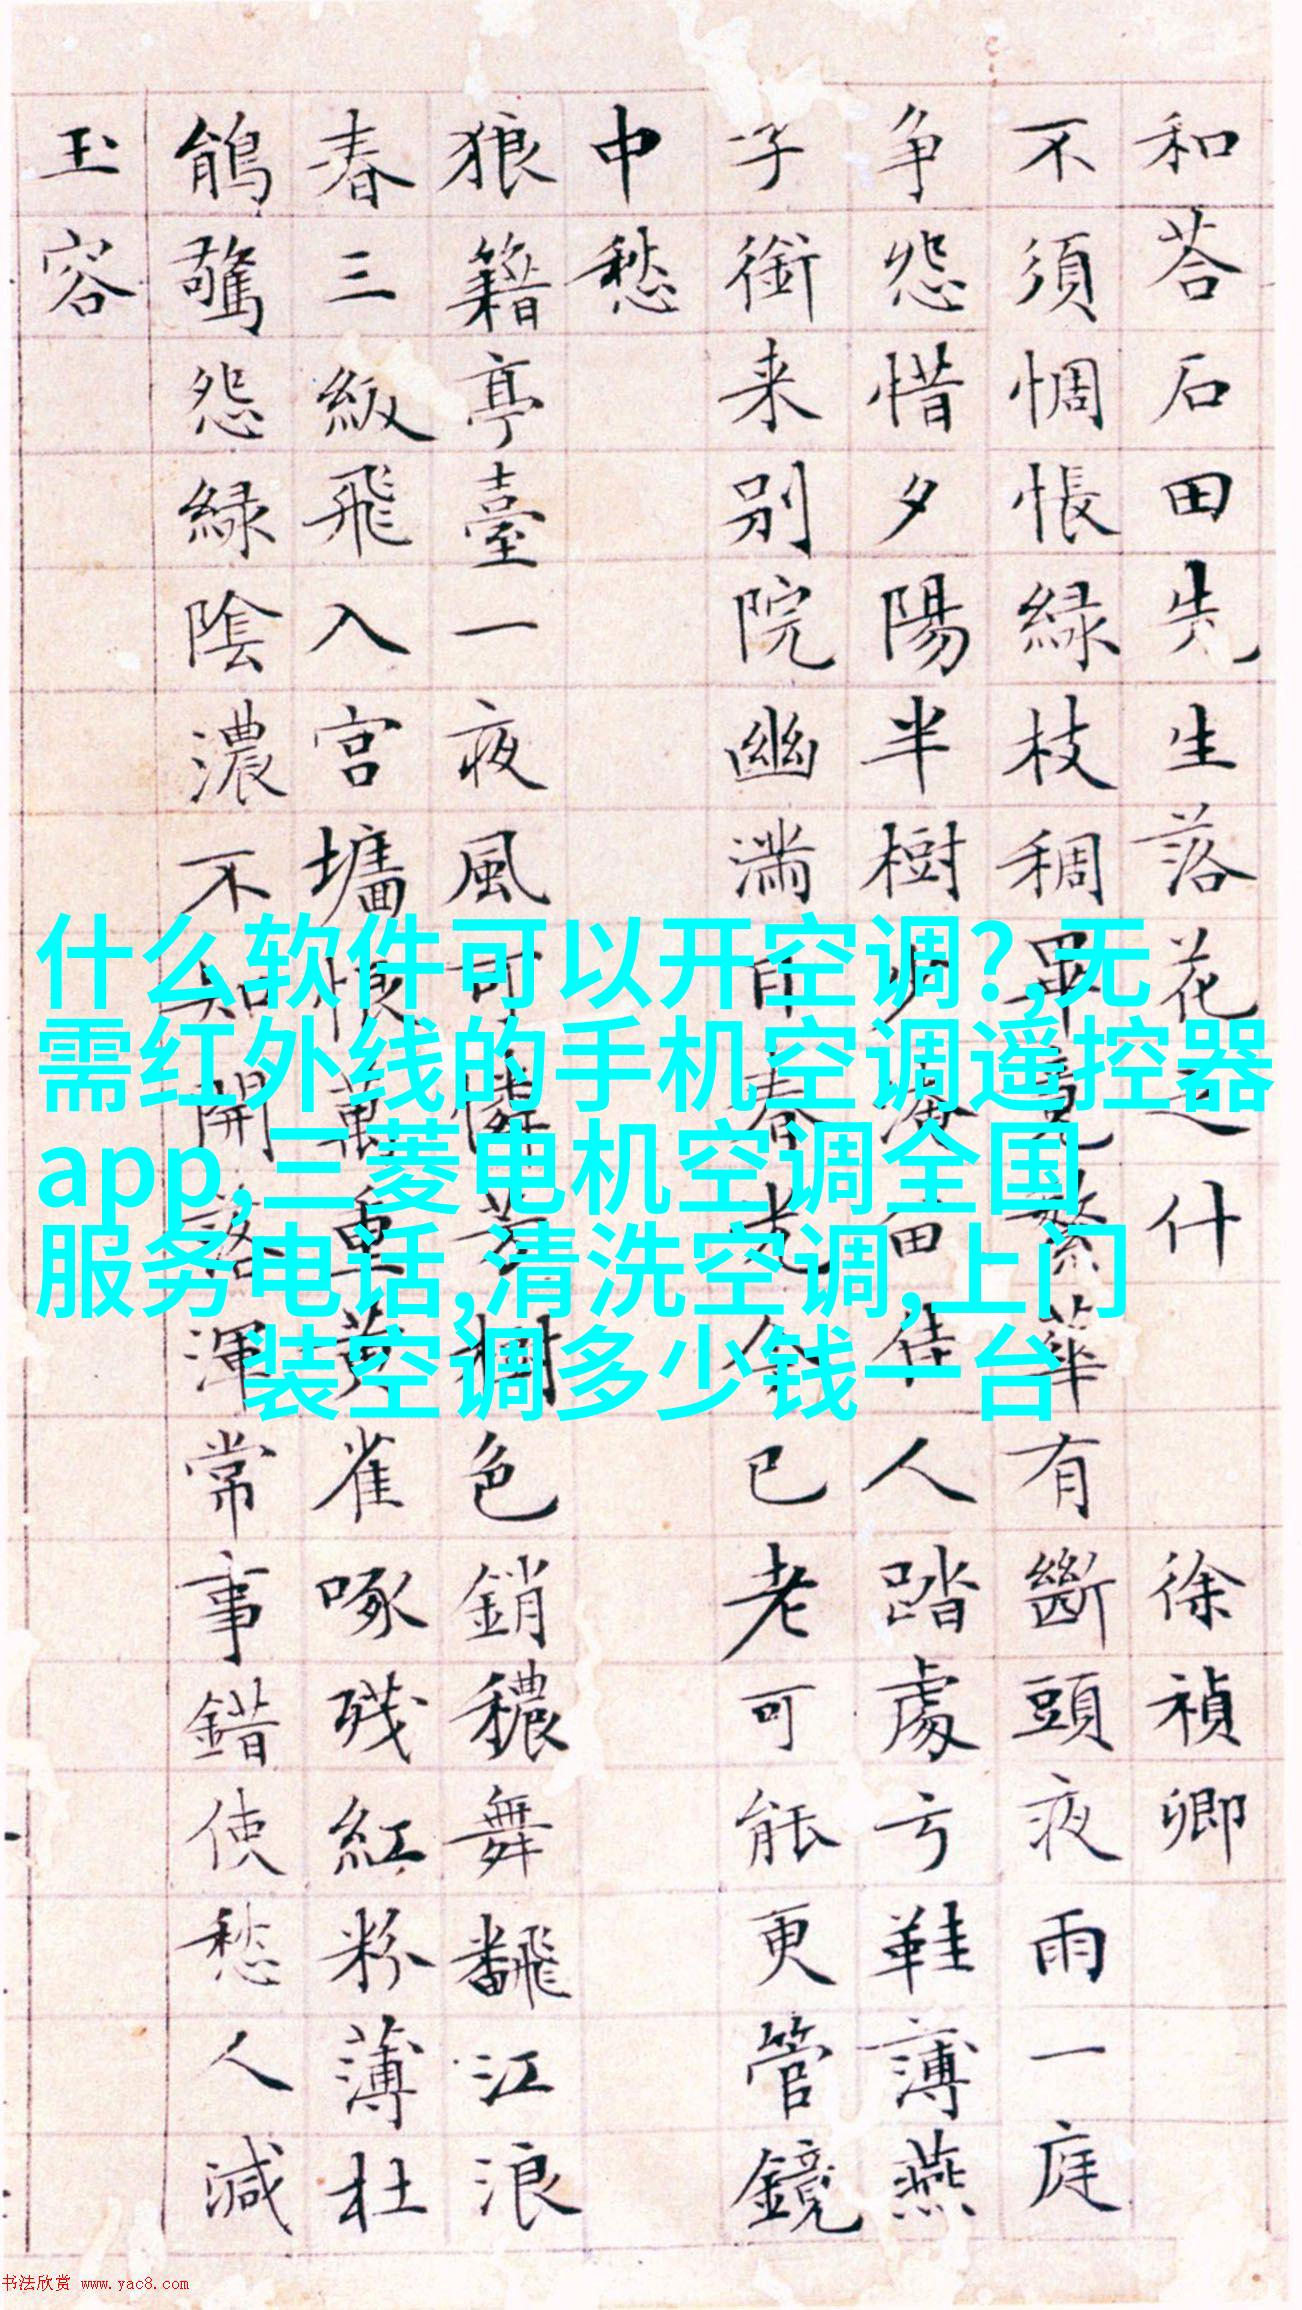 和荅石田先生落花之什 徐禎卿
不須惆悵綠枝稠畢竟繁華有斷頭夜雨一庭
争怨惜夕陽半樹少淹留佳人踏處弓鞋薄燕
子銜来别院幽滿目春光今已老可能更管鏡
中愁
狼籍亭臺一夜風可憐芳樹色銷穠舞飜江浪
春三級飛入宫墻恨萬重黄雀啄残紅粉薄杜
鵑驚怨緑陰濃不知開落渾常事錯使愁人減
玉容
什么软件可以开空调?,无
需红外线的手机空调遥控器
app,三菱电机空调全国
服务电话,清洗空调,上门
装空调多少钱一台
书法欣赏 www.yac8.com